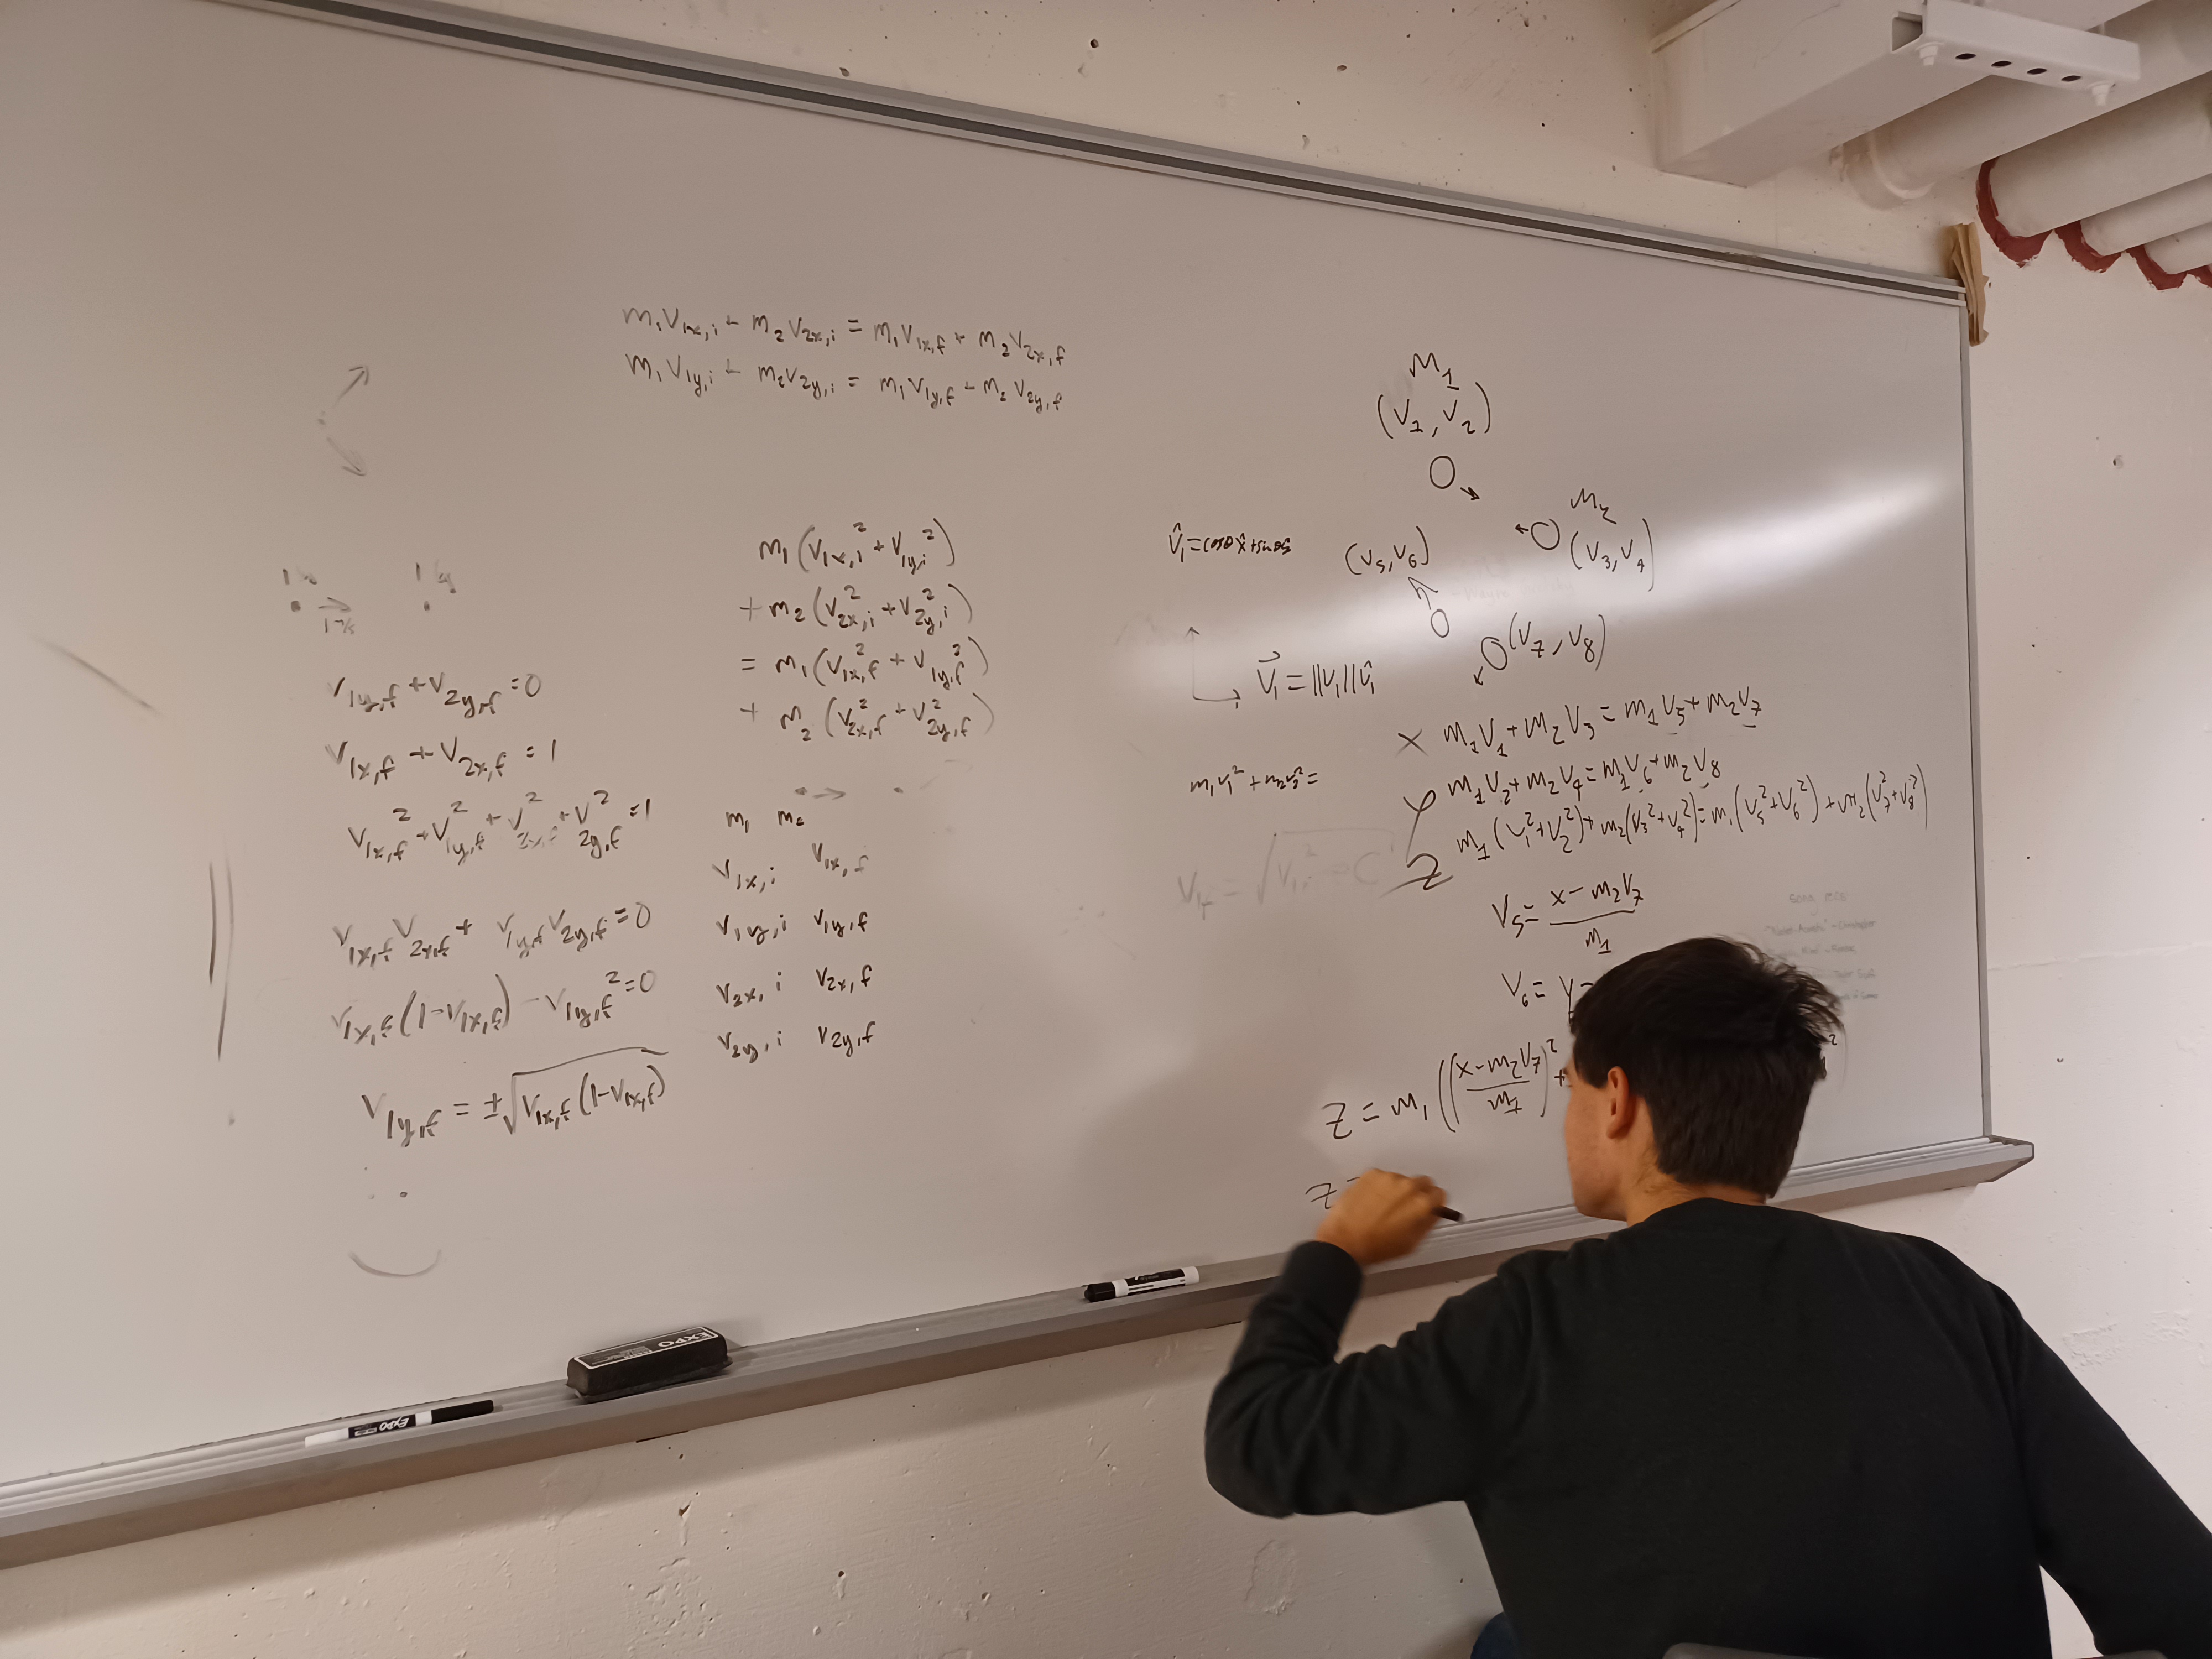 m₁V₁ₓ,ᵢ + m₂V₂ₓ,ᵢ = m₁V₁ₓ,f + m₂V₂ₓ,f
m₁V₁y,ᵢ + m₂V₂y,ᵢ = m₁V₁y,f + m₂V₂y,f
1 m/s
V₁y,f + V₂y,f = 0
V₁ₓ,f + V₂ₓ,f = 1
V₁ₓ,f² + V₁y,f² + V₂ₓ,f² + V₂y,f² = 1
V₁ₓ,f V₂ₓ,f + V₁y,f V₂y,f = 0
V₁ₓ,f (1 - V₁ₓ,f) - V₁y,f² = 0
V₁y,f = ±√(V₁ₓ,f (1 - V₁ₓ,f))
m₁(V₁ₓ,ᵢ² + V₁y,ᵢ²)
+ m₂(V₂ₓ,ᵢ² + V₂y,ᵢ²)
= m₁(V₁ₓ,f² + V₁y,f²)
+ m₂(V₂ₓ,f² + V₂y,f²)
m₁ m₂
V₁ₓ,ᵢ V₁ₓ,f
V₁y,ᵢ V₁y,f
V₂ₓ,ᵢ V₂ₓ,f
V₂y,ᵢ V₂y,f
m₁
(V₁, V₂)
m₂
(V₃, V₄)
(V₅, V₆)
(V₇, V₈)
V⃗₁ = ||V₁|| V̂₁
m₁V₁² + m₂V₂² =
X m₁V₁ + m₂V₃ = m₁V₅ + m₂V₇
Y m₁V₂ + m₂V₄ = m₁V₆ + m₂V₈
Z m₁(V₁² + V₂²) + m₂(V₃² + V₄²) = m₁(V₅² + V₆²) + m₂(V₇² + V₈²)
V₅ = (X - m₂V₇)/m₁
V₆ = Y -
Z = m₁(((X - m₂V₇)/m₁)² +
Z =
EXPO
EXPO